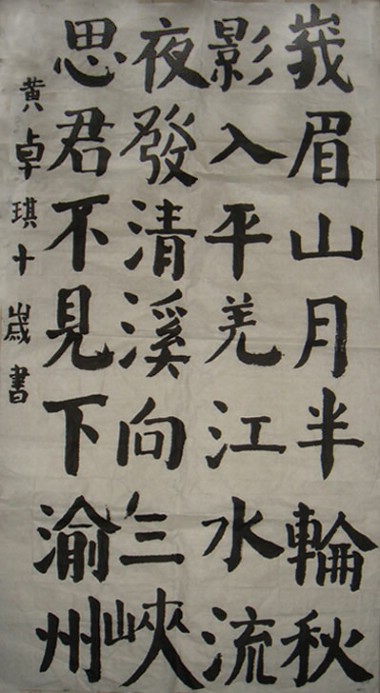 峩眉山月半輪秋
影入平羌江水流
夜發清溪向三峽
思君不見下渝州
黄卓琪十歲書